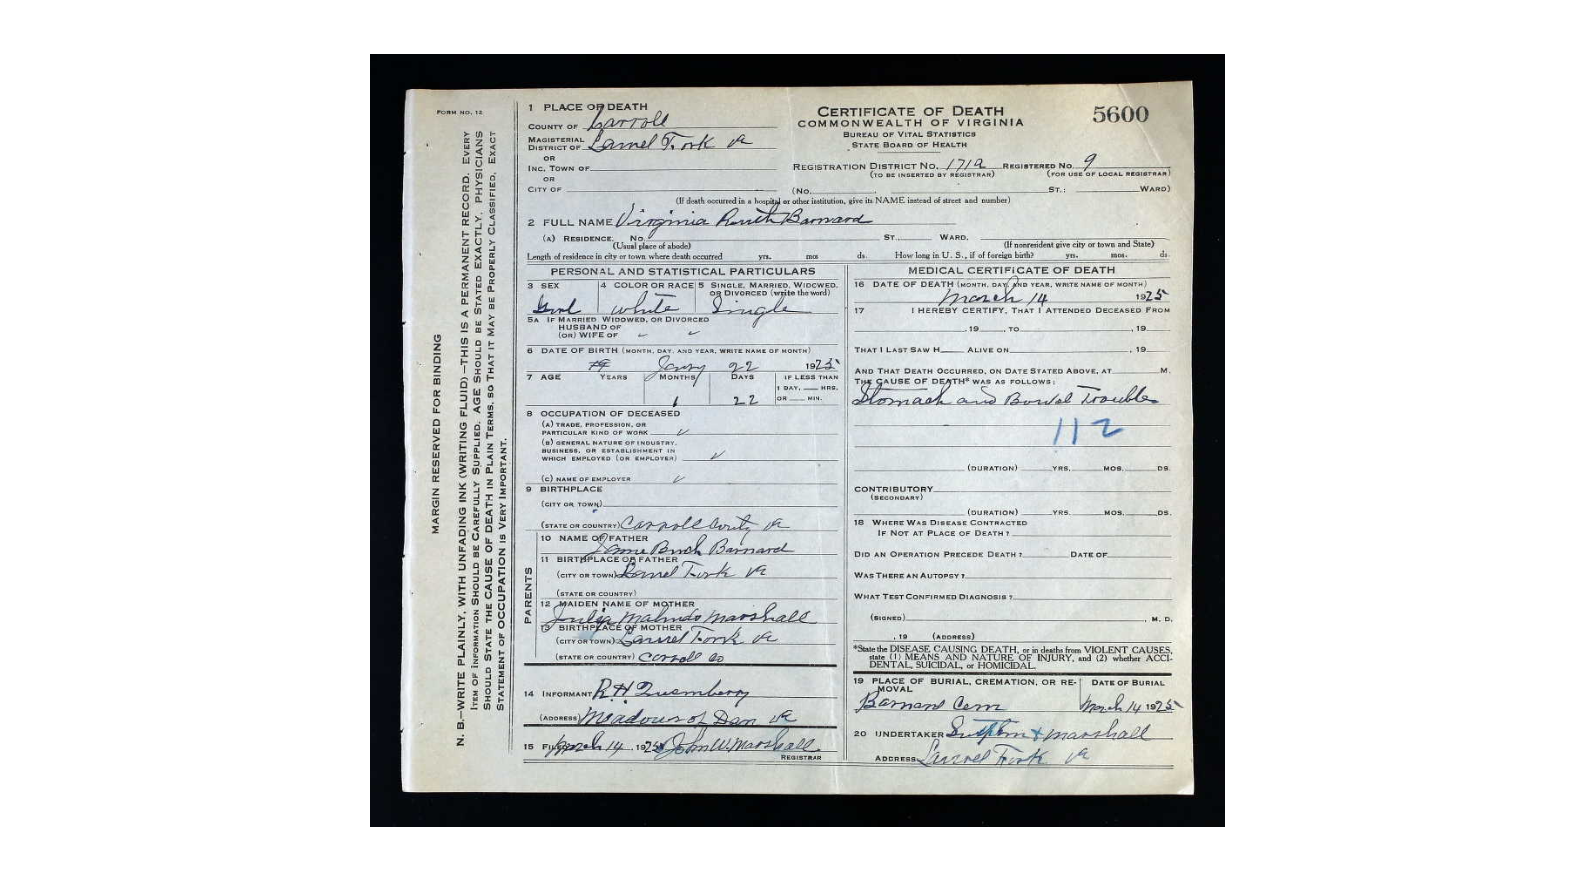 FORM NO. 12
MARGIN RESERVED FOR BINDING
N. B.—WRITE PLAINLY, WITH UNFADING INK (WRITING FLUID)—THIS IS A PERMANENT RECORD. EVERY
ITEM OF INFORMATION SHOULD BE CAREFULLY SUPPLIED. AGE SHOULD BE STATED EXACTLY. PHYSICIANS
SHOULD STATE THE CAUSE OF DEATH IN PLAIN TERMS, SO THAT IT MAY BE PROPERLY CLASSIFIED. EXACT
STATEMENT OF OCCUPATION IS VERY IMPORTANT.
1 PLACE OF DEATH
COUNTY OF Carroll
MAGISTERIAL
DISTRICT OF Laurel Fork Va
OR
INC. TOWN OF
OR
CITY OF
CERTIFICATE OF DEATH
COMMONWEALTH OF VIRGINIA
BUREAU OF VITAL STATISTICS
STATE BOARD OF HEALTH
5600
REGISTRATION DISTRICT NO. 171a REGISTERED NO. 9
(TO BE INSERTED BY REGISTRAR) (FOR USE OF LOCAL REGISTRAR)
(No. ST.; WARD)
(If death occurred in a hospital or other institution, give its NAME instead of street and number)
2 FULL NAME Virginia Ruth Barnard
(A) RESIDENCE. No. ST. WARD.
(Usual place of abode) (If nonresident give city or town and State)
Length of residence in city or town where death occurred yrs. mos ds. How long in U. S., if of foreign birth? yrs. mos. ds
PERSONAL AND STATISTICAL PARTICULARS
3 SEX
Girl
4 COLOR OR RACE
white
5 SINGLE, MARRIED, WIDOWED, OR DIVORCED (write the word)
Single
5A IF MARRIED, WIDOWED, OR DIVORCED
HUSBAND OF
(OR) WIFE OF
6 DATE OF BIRTH (MONTH, DAY, AND YEAR, WRITE NAME OF MONTH)
22 1925
7 AGE YEARS MONTHS DAYS IF LESS THAN
1 DAY, HRS.
OR MIN.
1 22
8 OCCUPATION OF DECEASED
(A) TRADE, PROFESSION, OR
PARTICULAR KIND OF WORK
(B) GENERAL NATURE OF INDUSTRY,
BUSINESS, OR ESTABLISHMENT IN
WHICH EMPLOYED (OR EMPLOYER)
(C) NAME OF EMPLOYER
9 BIRTHPLACE
(CITY OR TOWN)
(STATE OR COUNTRY) Carroll County Va
PARENTS
10 NAME OF FATHER
Barnard
11 BIRTHPLACE OF FATHER
(CITY OR TOWN) Laurel Fork Va
(STATE OR COUNTRY)
12 MAIDEN NAME OF MOTHER
Julia Malinda Marshall
13 BIRTHPLACE OF MOTHER
(CITY OR TOWN) Laurel Fork Va
(STATE OR COUNTRY) Carroll Co
14 INFORMANT R H Quesenberry
(ADDRESS) Meadows of Dan Va
15 FILED March 14, 1925 John W. Marshall
REGISTRAR
MEDICAL CERTIFICATE OF DEATH
16 DATE OF DEATH (MONTH, DAY, AND YEAR, WRITE NAME OF MONTH)
March 14 1925
17 I HEREBY CERTIFY, THAT I ATTENDED DECEASED FROM
, 19 TO , 19
THAT I LAST SAW H ALIVE ON , 19
AND THAT DEATH OCCURRED, ON DATE STATED ABOVE, AT M.
THE CAUSE OF DEATH* WAS AS FOLLOWS:
Stomach and Bowel Troubles
112
(DURATION) YRS. MOS. DS.
CONTRIBUTORY
(SECONDARY)
(DURATION) YRS. MOS. DS.
18 WHERE WAS DISEASE CONTRACTED
IF NOT AT PLACE OF DEATH?
DID AN OPERATION PRECEDE DEATH? DATE OF
WAS THERE AN AUTOPSY?
WHAT TEST CONFIRMED DIAGNOSIS?
(SIGNED) , M. D.
, 19 (ADDRESS)
*State the DISEASE CAUSING DEATH, or in deaths from VIOLENT CAUSES,
state (1) MEANS AND NATURE OF INJURY, and (2) whether ACCI-
DENTAL, SUICIDAL, or HOMICIDAL.
19 PLACE OF BURIAL, CREMATION, OR RE-
MOVAL
Barnard Cem
DATE OF BURIAL
March 14 1925
20 UNDERTAKER Sutphin & Marshall
ADDRESS Laurel Fork Va